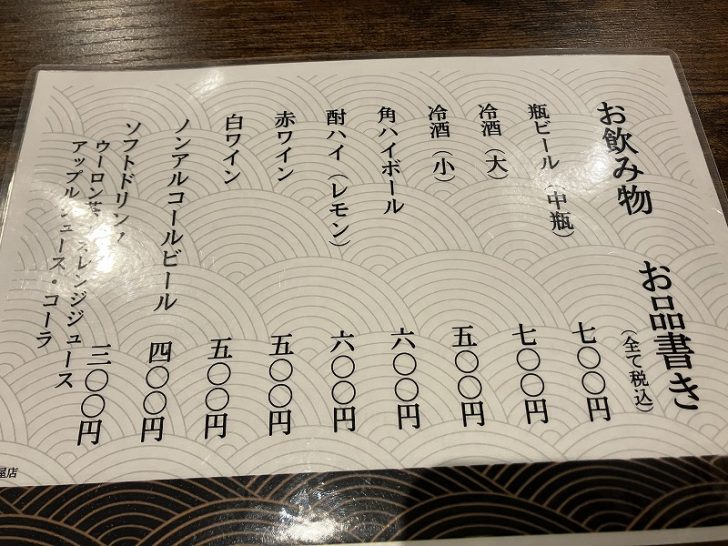 お飲み物 お品書き
(全て税込)
瓶ビール(中瓶) 七〇〇円
冷酒(大) 七〇〇円
冷酒(小) 五〇〇円
角ハイボール 六〇〇円
酎ハイ(レモン) 六〇〇円
赤ワイン 五〇〇円
白ワイン 五〇〇円
ノンアルコールビール 四〇〇円
ソフトドリンク 三〇〇円
ウーロン レンジジュース
アップルジュース・コーラ
屋店